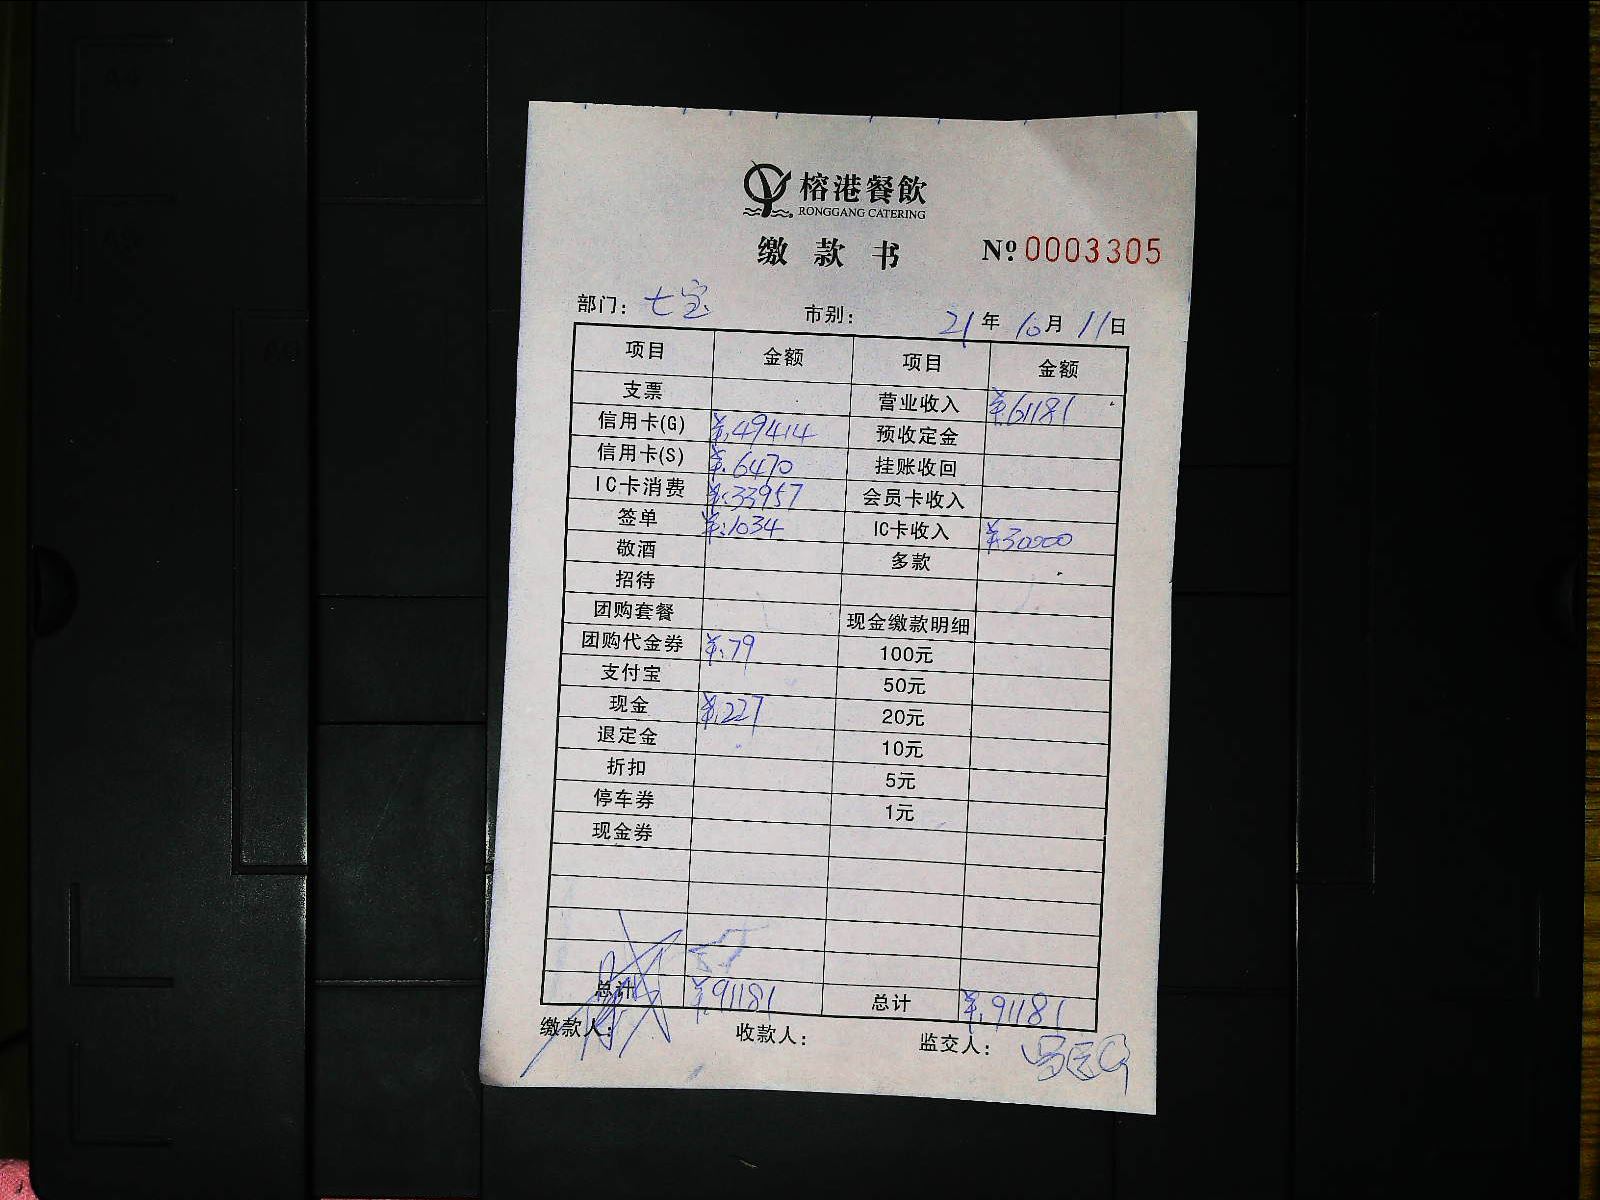 榕港餐飲
RONGGANG CATERING
缴款书 Nº 0003305
部门：七宝 市别： 21年10月11日
项目 金额 项目 金额
支票 营业收入 ¥:61181
信用卡(G) ¥:49414 预收定金
信用卡(S) ¥:6470 挂账收回
IC卡消费 ¥:33957 会员卡收入
签单 ¥:1034 IC卡收入 ¥:30000
敬酒 多款
招待
团购套餐 现金缴款明细
团购代金券 ¥:79 100元
支付宝 50元
现金 ¥:227 20元
退定金 10元
折扣 5元
停车券 1元
现金券
总计 ¥:91181 总计 ¥:91181
缴款人： 收款人： 监交人：